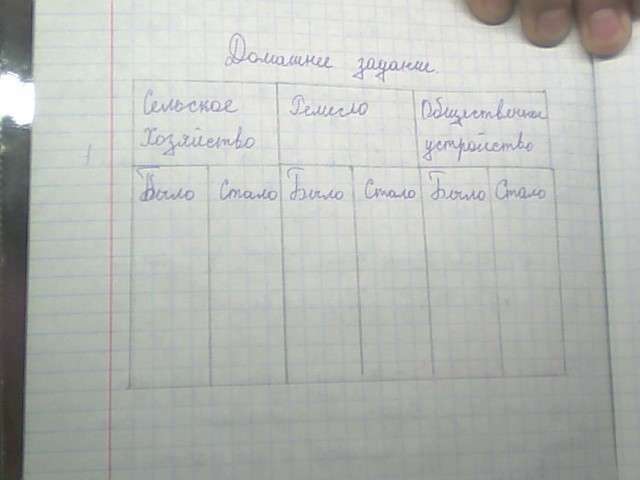 Домашнее задание.
Сельское
Хозяйство
Ремесло
Общественное
устройство
Было Стало Было Стало Было Стало